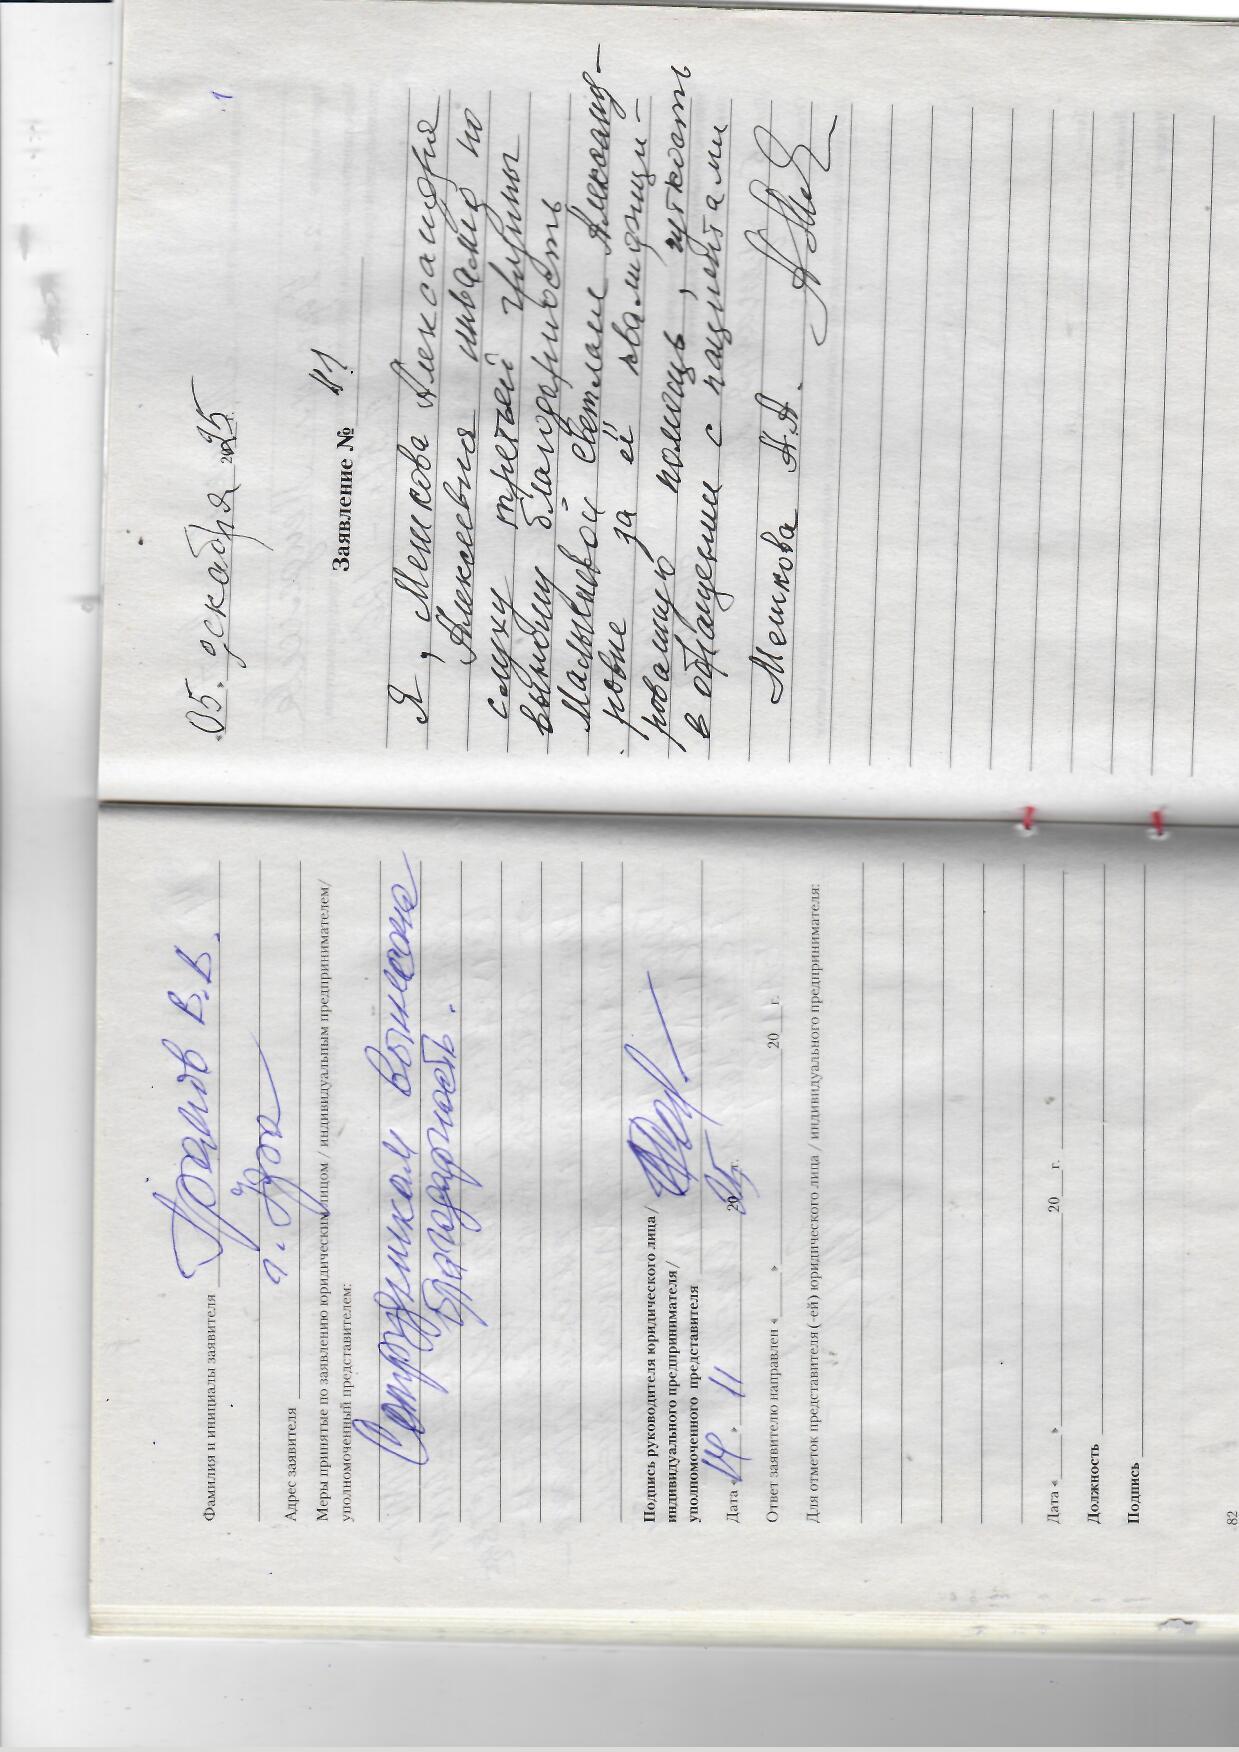 Фамилия и инициалы заявителя В.В.
Адрес заявителя г.
Меры принятые по заявлению юридическим лицом / индивидуальным предпринимателем/
уполномоченный представителем:
Сотрудникам вынесена
благодарность.
Подпись руководителя юридического лица /
индивидуального предпринимателя/
уполномоченного представителя
Дата « » 11 2025 г.
Ответ заявителю направлен « » 20 г.
Для отметок представителя (-ей) юридического лица / индивидуального предпринимателя:
Дата « » 20 г.
Должность
Подпись
82
1
«05» декабря 2025 г.
Заявление №
Я, Мешкова Александрия
Алексеевна инвалид по
слуху третьей группы
выношу благодарность
Светлане Александ-
ровне за её квалифици-
рованную помощь, чуткость
в обращении с пациентами
Мешкова А.А.